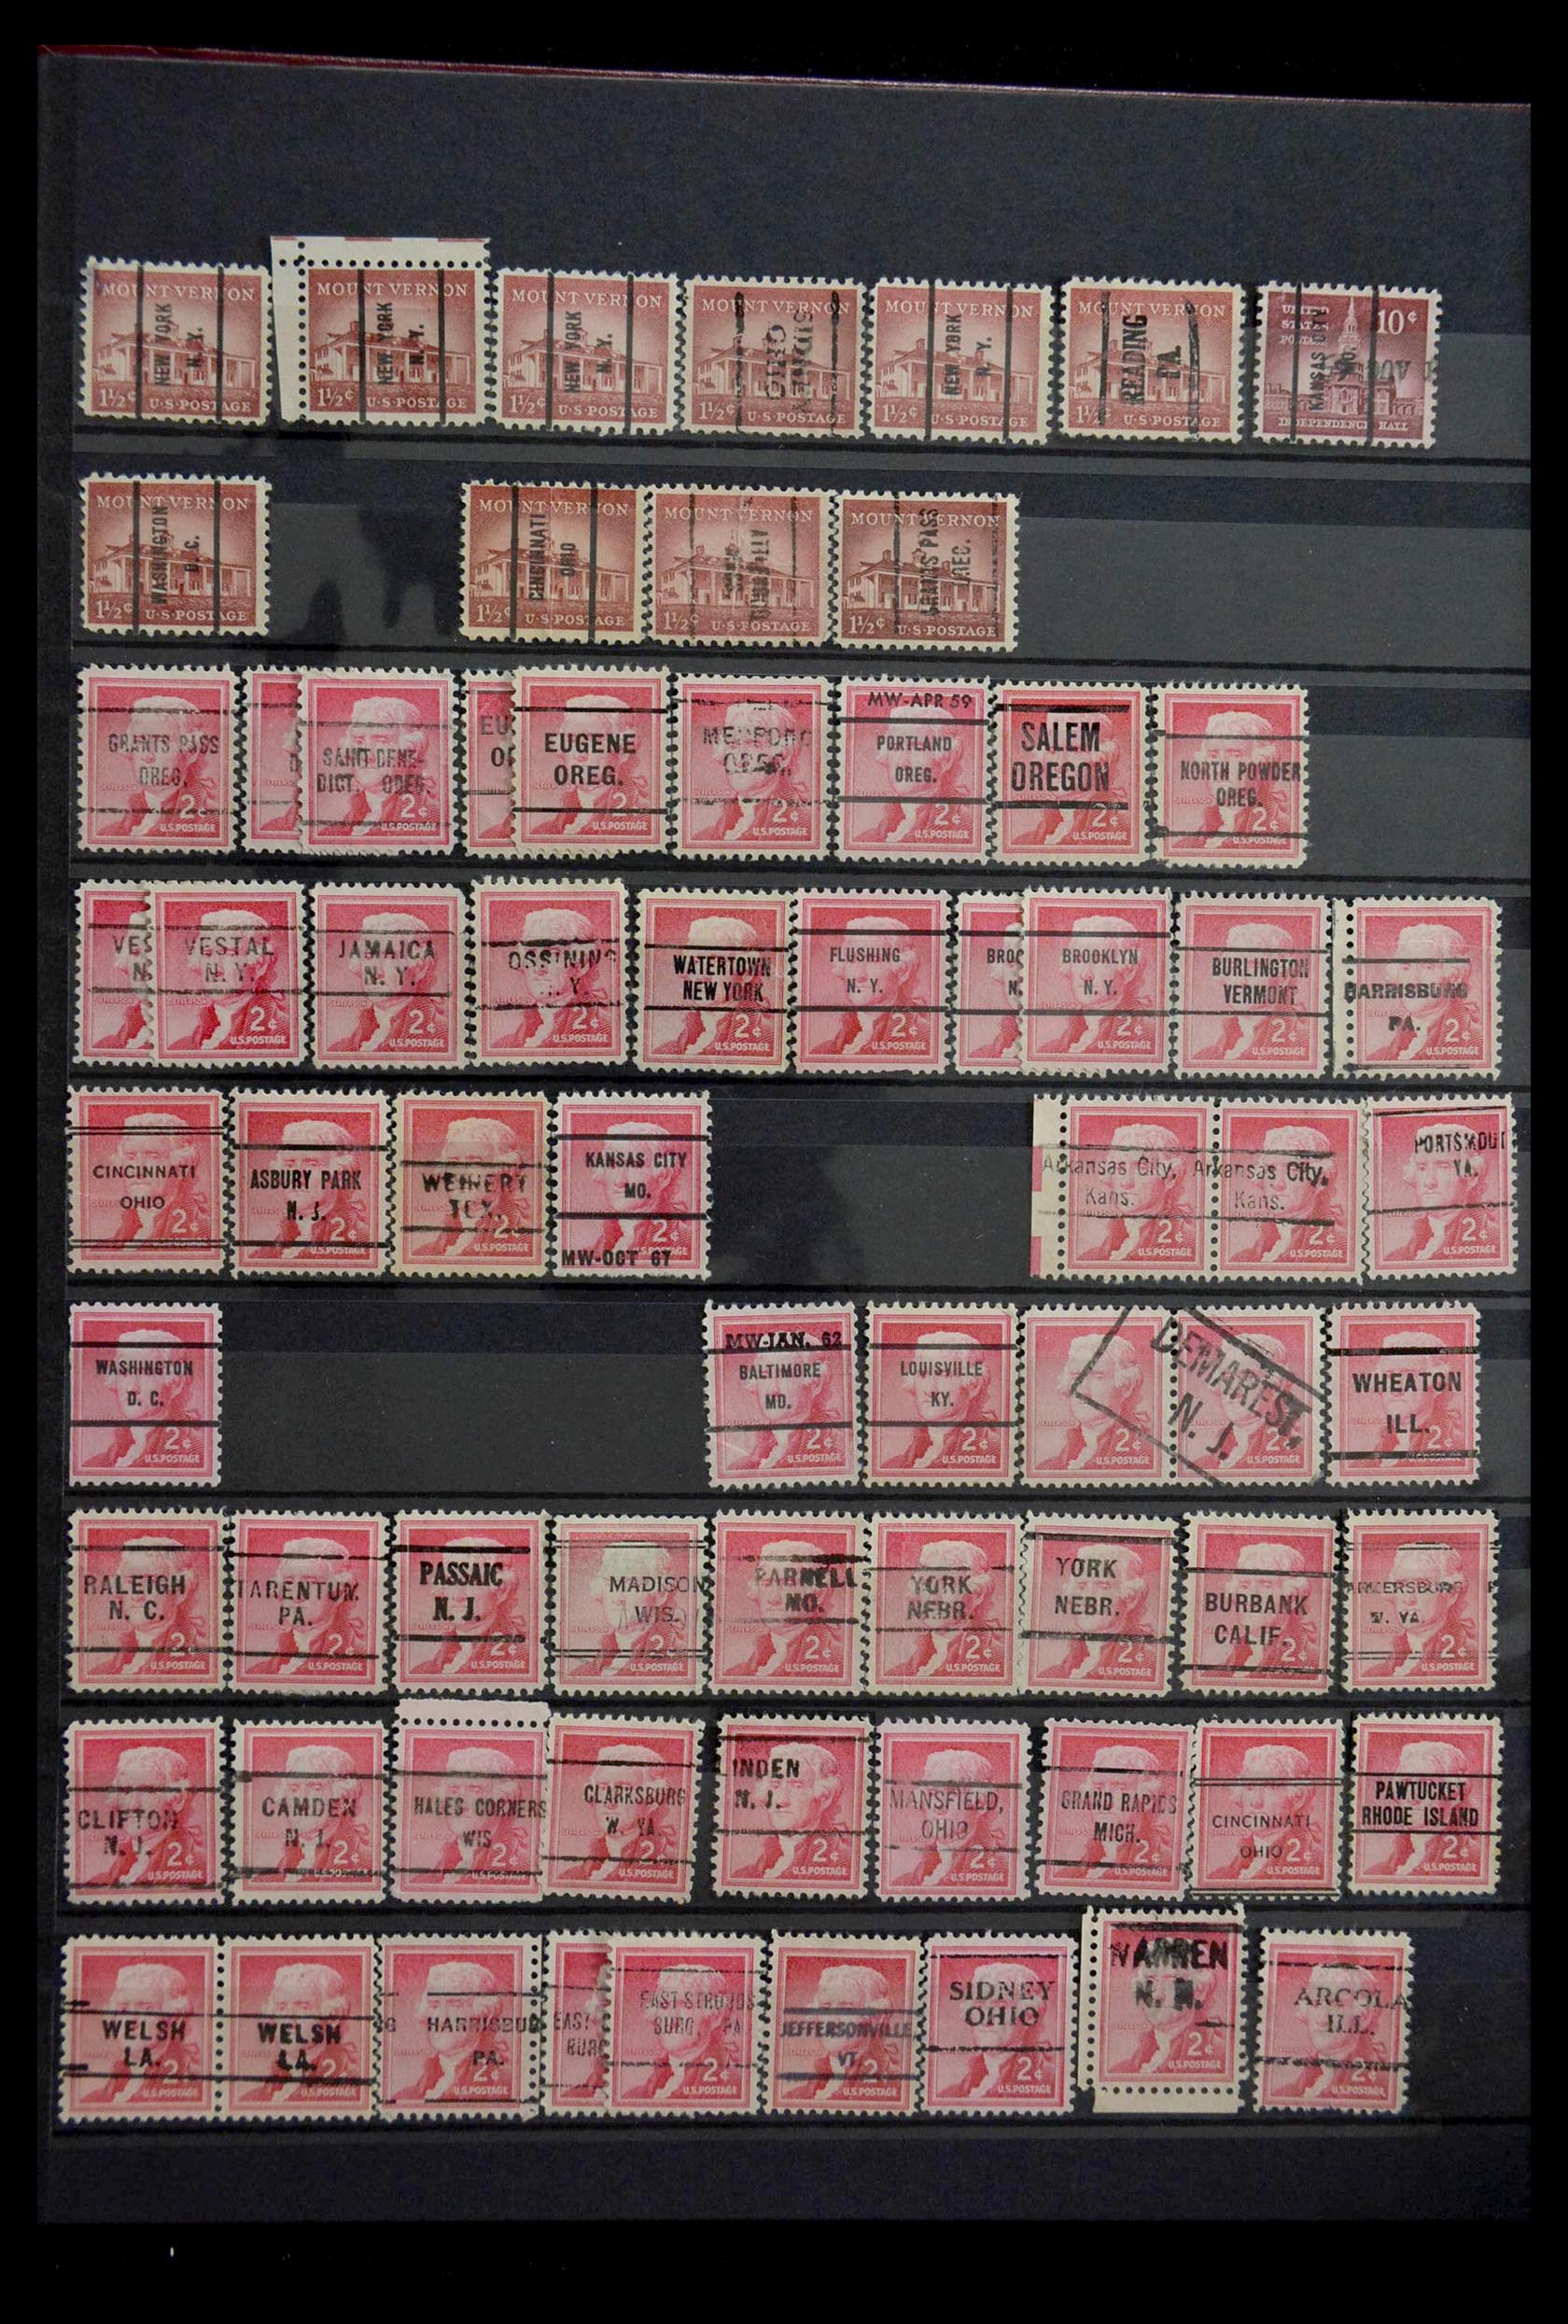 MOUNT VERNON
NEW YORK
N. Y.
1½¢ U·S·POSTAGE
MOUNT VERNON
NEW YORK
N. Y.
1½¢ U·S·POSTAGE
MOUNT VERNON
NEW YORK
N. Y.
1½¢ U·S·POSTAGE
MOUNT VERNON
SIDNEY
OHIO
1½¢ U·S·POSTAGE
MOUNT VERNON
NEW YORK
N. Y.
1½¢ U·S·POSTAGE
MOUNT VERNON
READING
PA.
1½¢ U·S·POSTAGE
UNITED
STATES
POSTAGE
10¢
KANSAS CITY
MO.
AUG
INDEPENDENCE HALL
MOUNT VERNON
WASHINGTON
D.C.
1½¢ U·S·POSTAGE
MOUNT VERNON
CINCINNATI
OHIO
1½¢ U·S·POSTAGE
MOUNT VERNON
1½¢ U·S·POSTAGE
MOUNT VERNON
GRANTS PASS
OREG.
1½¢ U·S·POSTAGE
GRANTS PASS
OREG.
2¢
U.S.POSTAGE
SAINT BENE-
DICT. OREG.
2¢
U.S.POSTAGE
EU
OR
EUGENE
OREG.
2¢
U.S.POSTAGE
MEDFORD
OREG.
2¢
U.S.POSTAGE
MW-APR 59
PORTLAND
OREG.
2¢
U.S.POSTAGE
SALEM
OREGON
2¢
U.S.POSTAGE
NORTH POWDER
OREG.
2¢
U.S.POSTAGE
VES
N.
VESTAL
N. Y.
2¢
U.S.POSTAGE
JAMAICA
N. Y.
2¢
U.S.POSTAGE
OSSINING
. Y.
2¢
U.S.POSTAGE
WATERTOWN
NEW YORK
2¢
U.S.POSTAGE
FLUSHING
N. Y.
2¢
U.S.POSTAGE
BROO
N.
BROOKLYN
N. Y.
2¢
U.S.POSTAGE
BURLINGTON
VERMONT
2¢
U.S.POSTAGE
HARRISBURG
PA.
2¢
U.S.POSTAGE
CINCINNATI
OHIO
2¢
ASBURY PARK
N. J.
2¢
U.S.POSTAGE
WEINERT
TEX.
2¢
U.S.POSTAGE
KANSAS CITY
MO.
2¢
U.S.POSTAGE
MW-OCT 67
Arkansas City,
Kans.
2¢
U.S.POSTAGE
Arkansas City,
Kans.
2¢
U.S.POSTAGE
PORTSMOUT
VA.
2¢
U.S.POSTAGE
WASHINGTON
D. C.
2¢
U.S.POSTAGE
MW-JAN. 62
BALTIMORE
MD.
2¢
U.S.POSTAGE
LOUISVILLE
KY.
2¢
U.S.POSTAGE
2¢
U.S.POSTAGE
DEMAREST,
N. J.
2¢
U.S.POSTAGE
WHEATON
ILL.
2¢
RALEIGH
N. C.
2¢
U.S.POSTAGE
TARENTUM.
PA.
2¢
U.S.POSTAGE
PASSAIC
N. J.
2¢
U.S.POSTAGE
MADISON
WIS.
2¢
U.S.POSTAGE
PARNELL
MO.
2¢
U.S.POSTAGE
YORK
NEBR.
2¢
U.S.POSTAGE
YORK
NEBR.
2¢
U.S.POSTAGE
BURBANK
CALIF.
2¢
U.S.POSTAGE
ARKERSBURG P
W. VA.
2¢
U.S.POSTAGE
CLIFTON
N. J.
2¢
U.S.POSTAGE
CAMDEN
N. J.
2¢
U.S.POSTAGE
HALES CORNERS
WIS
2¢
U.S.POSTAGE
CLARKSBURG
W. VA.
2¢
U.S.POSTAGE
INDEN
N. J.
2¢
U.S.POSTAGE
MANSFIELD,
OHIO
2¢
U.S.POSTAGE
GRAND RAPIDS
MICH.
2¢
U.S.POSTAGE
CINCINNATI
OHIO
2¢
PAWTUCKET
RHODE ISLAND
2¢
U.S.POSTAGE
WELSH
LA.
2¢
U.S.POSTAGE
WELSH
LA.
2¢
U.S.POSTAGE
RG HARRISBUR
PA.
2¢
U.S.POSTAGE
EAST S
BURG
EAST STROUDS
BURG, PA
2¢
U.S.POSTAGE
JEFFERSONVILLE
VT.
2¢
U.S.POSTAGE
SIDNEY
OHIO
2¢
U.S.POSTAGE
WARREN
N. H.
2¢
U.S.POSTAGE
ARCOLA
ILL.
2¢
U.S.POSTAGE